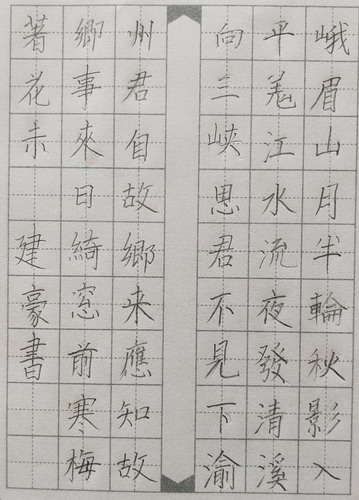 峨眉山月半輪秋影入
平羌江水流夜發清溪
向三峽思君不見下渝
州君自故鄉来應知故
鄉事來日綺窓前寒梅
著花未
建豪書